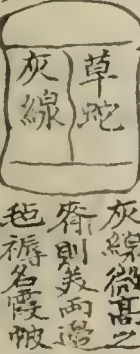 草蛇
灰線
灰線微高之
齊則美兩邊
毡褥名霞帔